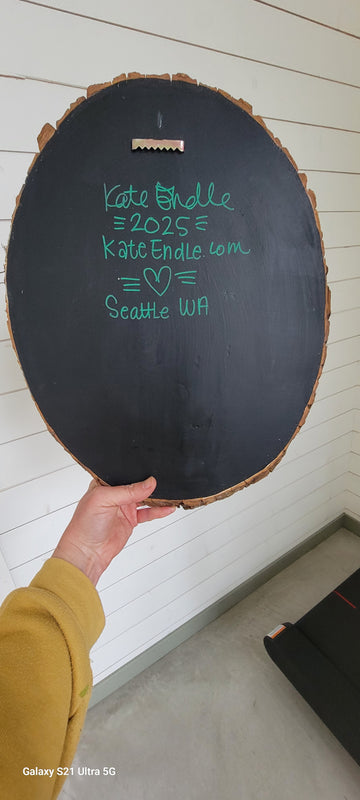 Kate Endle
2025
KateEndle.com
Seattle WA
Galaxy S21 Ultra 5G